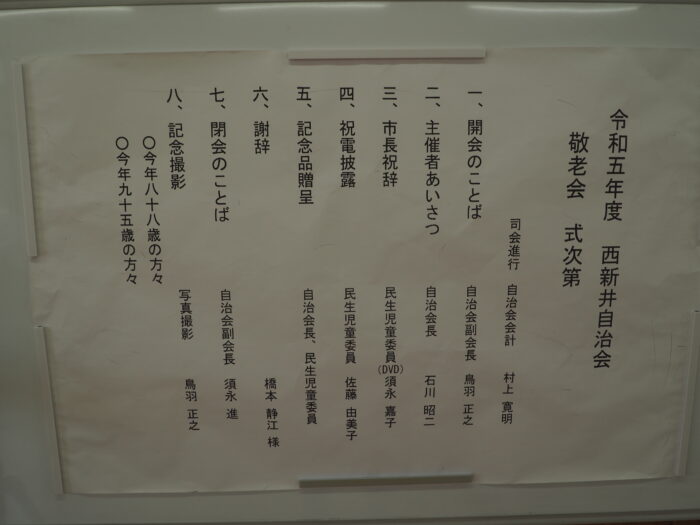 令和五年度　西新井自治会
敬老会　式次第
司会進行　自治会会計　村上　寛明
一、開会のことば　自治会副会長　鳥羽　正之
二、主催者あいさつ　自治会長　石川　昭二
三、市長祝辞　民生児童委員(DVD)　須永　嘉子
四、祝電披露　民生児童委員　佐藤　由美子
五、記念品贈呈　自治会長、民生児童委員
六、謝辞　橋本　静江　様
七、閉会のことば　自治会副会長　須永　進
八、記念撮影　写真撮影　鳥羽　正之
〇今年八十八歳の方々
〇今年九十五歳の方々